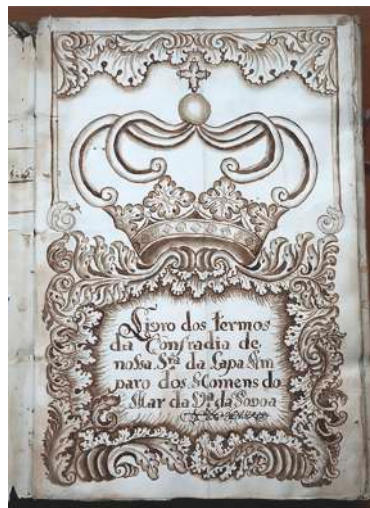 Livro dos termos
da Confradia de
nossa Snrª da Lapa Am
paro dos Homens do
Mar da Vª. da Povoa